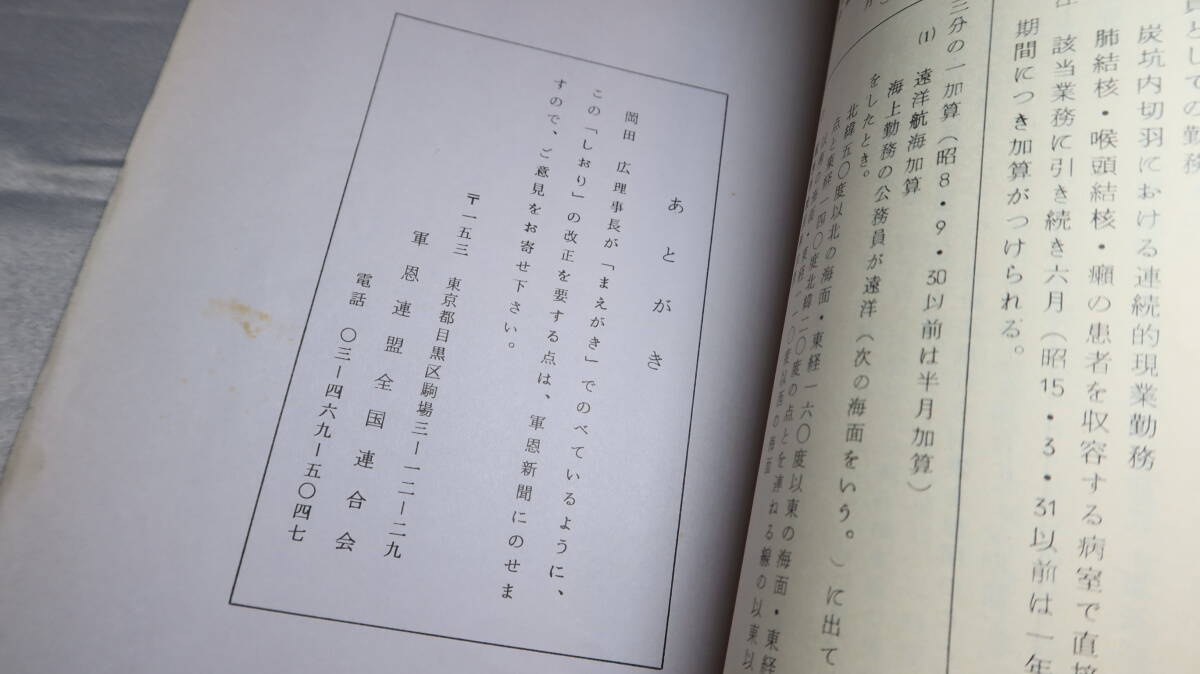 員としての勤務
炭坑内切羽における連続的現業勤務
肺結核・喉頭結核・癩の患者を収容する病室で直接
該当業務に引き続き六月（昭15・3・31以前は一年
期間につき加算がつけられる。
三分の一加算（昭8・9・30以前は半月加算）
(1) 遠洋航海加算
海上勤務の公務員が遠洋（次の海面をいう。）に出て
をしたとき。
北緯五〇度以北の海面・東経一六〇度以東の海面・東経
点と東経一四〇度北緯二〇度の点とを連ねる線の以東以
あとがき
岡田 広理事長が「まえがき」でのべているように、
この「しおり」の改正を要する点は、軍恩新聞にのせま
すので、ご意見をお寄せ下さい。
〒一五三 東京都目黒区駒場三ー一二ー二九
軍恩連盟全国連合会
電話 〇三ー四六九ー五〇四七